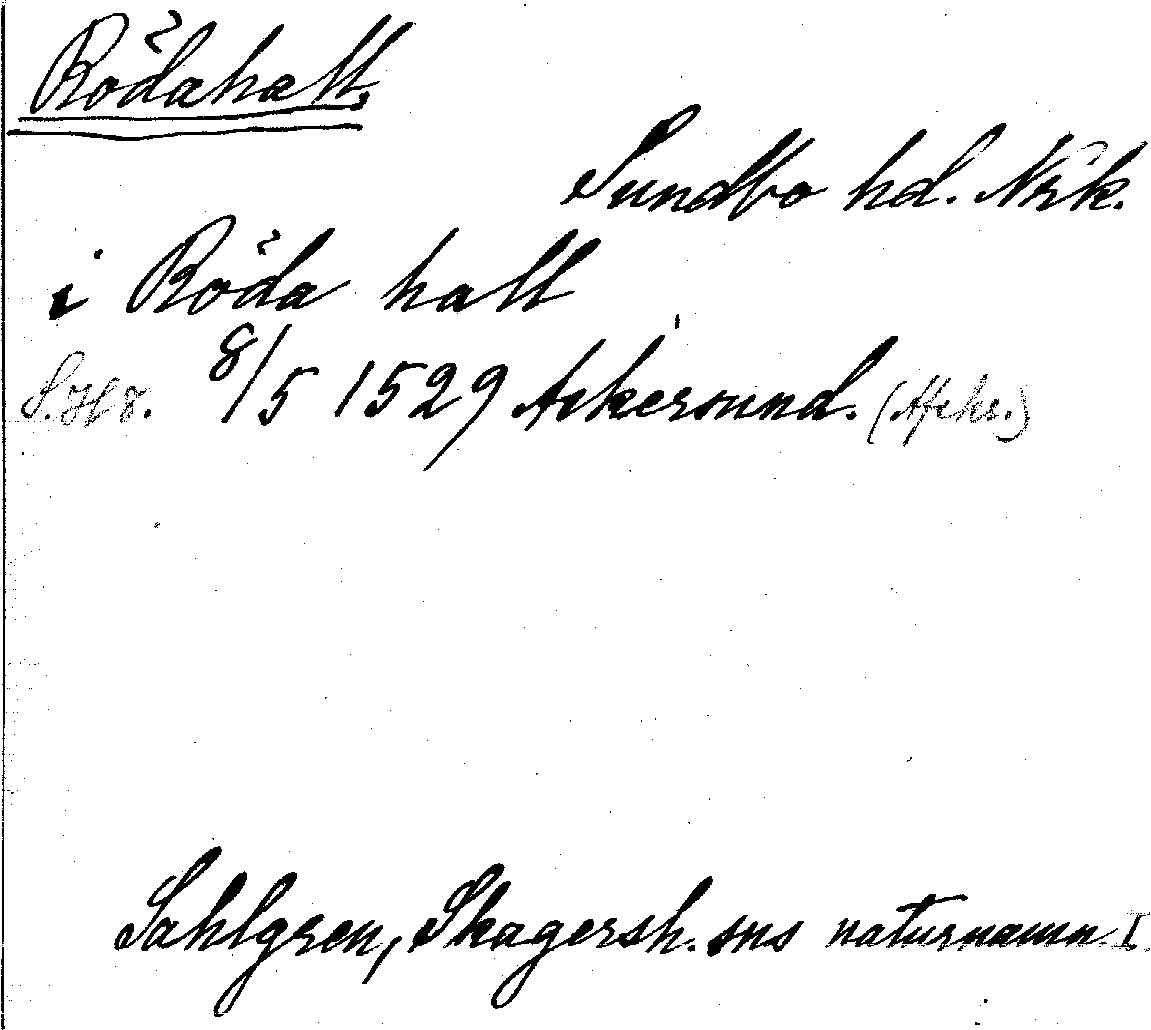 Rödahall,
Sundbo hd. Nrk.
i Röda hall
8/5 1529 Askersund. (Afskr.)
Sahlgren, Skagersh. sns naturnamn I